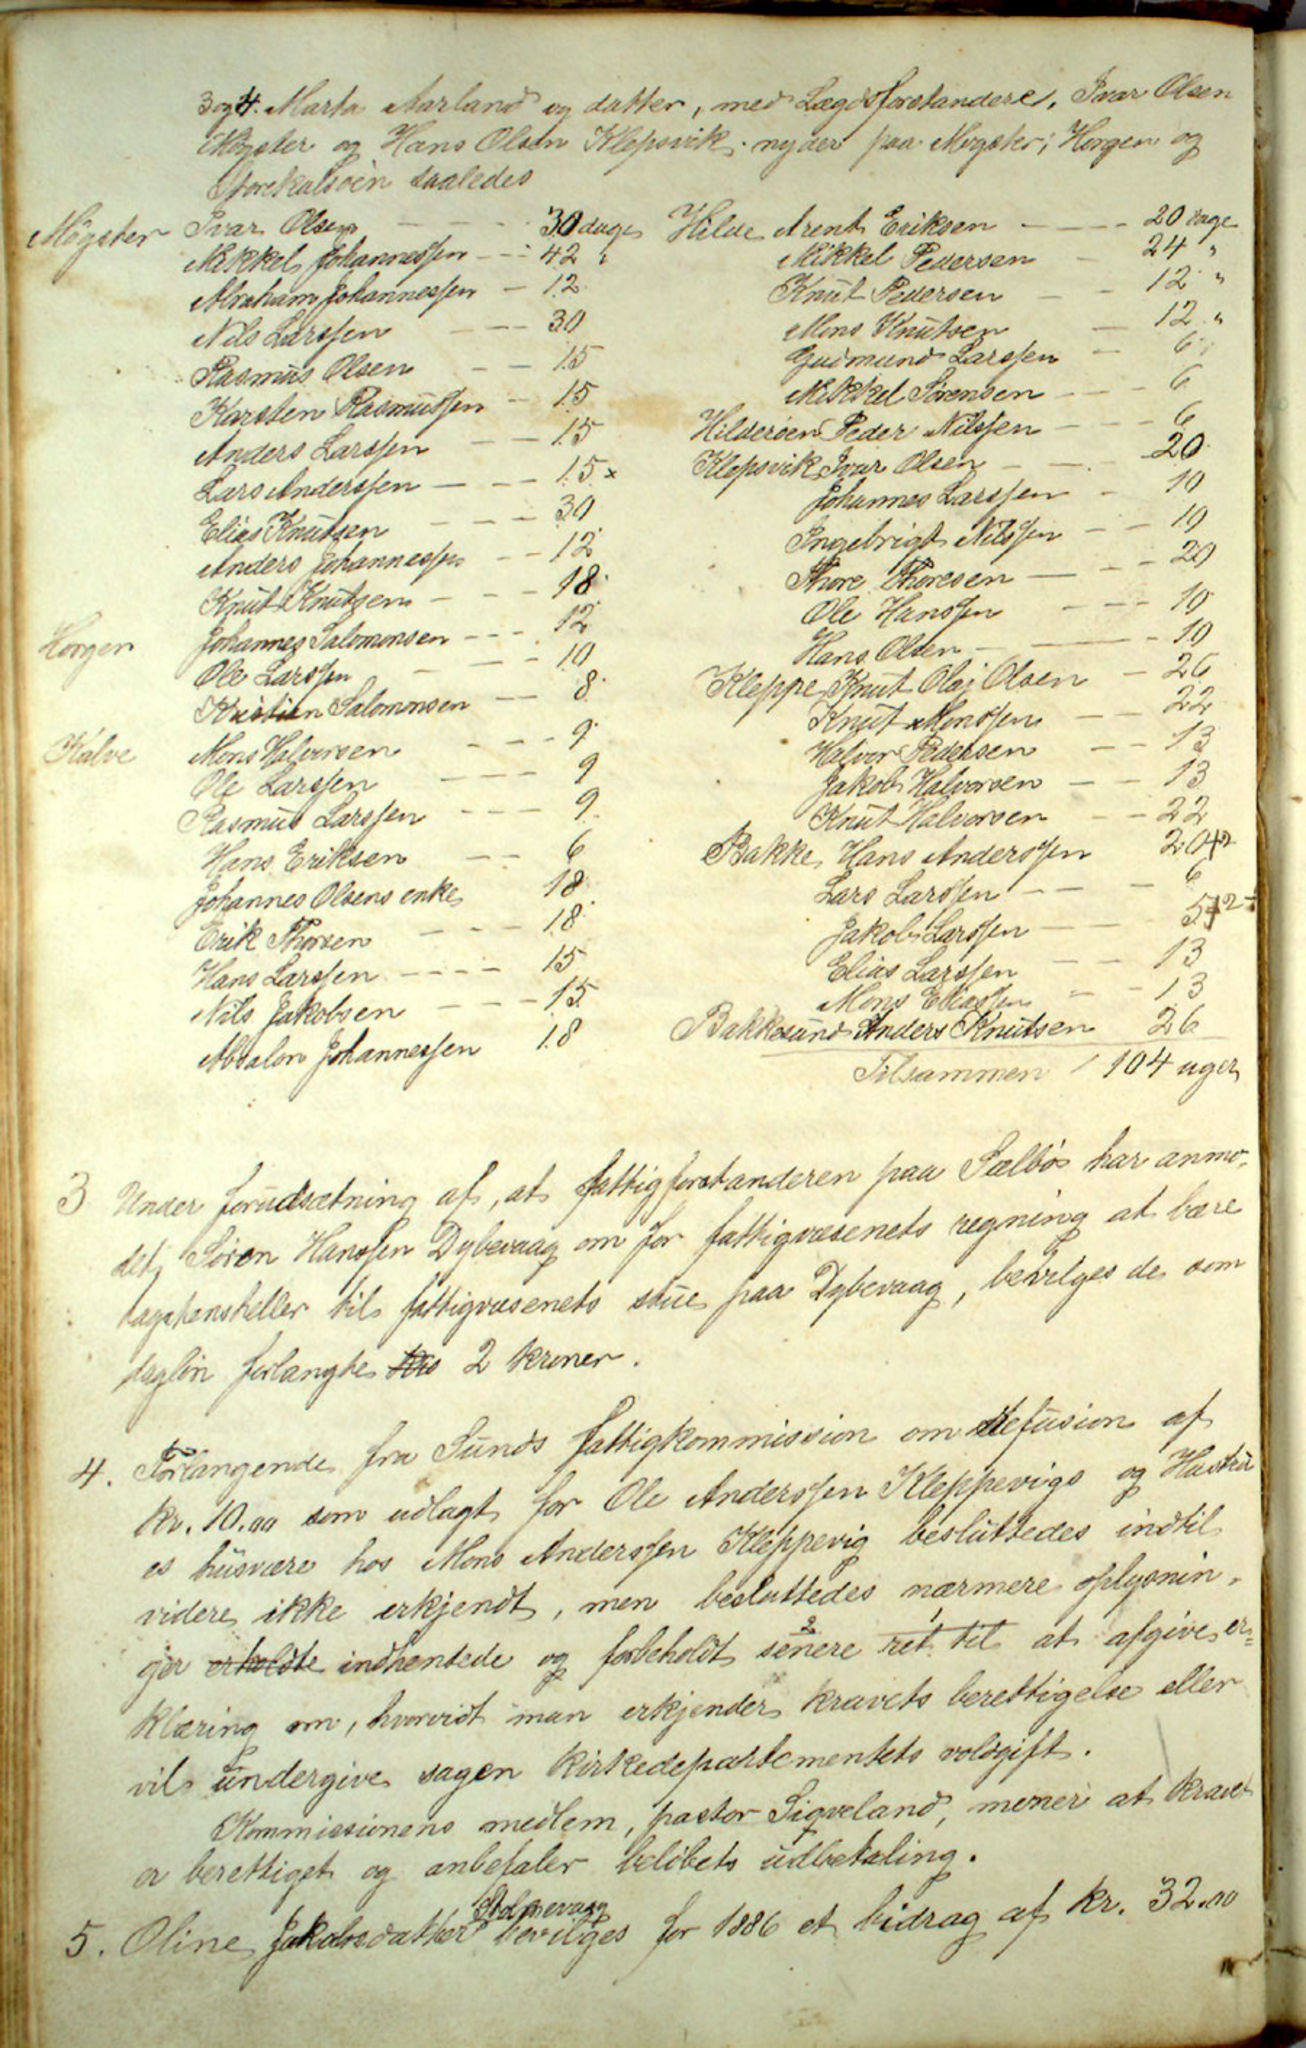 3 og 4. Marta Aarland og datter, med Lægdsforstandere, Ivar Olsen
Møgster og Hans Olsen Klepsvik. nyder paa Møgster, Horgen og
Storekalsøen saaledes
Møgster Ivar Olsen — 30 dage
Mikkel Johannessen — 42 "
Abraham Johannessen — 12
Nils Larssen — 30
Rasmus Olsen — 15
Karsten Rasmussen — 15
Anders Larssen — 15
Lars Anderssen — 15 x
Elias Knutsen — 30
Anders Johannessen — 12
Knut Knutsen — 18
Horgen Johannes Salomonsen — 12
Ole Larssen — 10
Kristian Salomonsen — 8
Kalve Mons Halvorsen — 9
Ole Larssen — 9
Rasmus Larssen — 9
Hans Eriksen — 6
Johannes Olsens enke 18
Erik Thorsen — 18
Hans Larssen — 15
Nils Jakobsen — 15
Absalon Johannessen 18
Hilde Arent Eriksen — 20 dage
Mikkel Pedersen — 24 "
Knut Pedersen — 12 "
Mons Knutsen — 12 "
Gudmund Larssen — 6
Mikkel Sørensen — 6
Hilderøen Peder Nilssen — 6
Klepsvik Ivar Olsen — 20
Johannes Larssen — 10
Ingebrigt Nilssen — 10
Thore Thoresen — 20
Ole Hanssen — 10
Hans Olsen — 10
Kleppe Knut Olaj Olsen — 26
Knut Monssen — 22
Halvor Pedersen — 13
Jakob Halvorsen — 13
Knut Halvorsen — 22
Bakke Hans Anderssen 20
Lars Larssen — 6
Jakob Larssen —
Elias Larssen — 13
Mons Eliassen — 13
Bakkesund Anders Knutsen 26
Tilsammen 104 uger
3 Under forudsætning af, at fattigforstanderen paa Sælbø har anmo-
det Søren Hanssen Dybevaag om for fattigvæsenets regning at bære
tagstensheller til fattigvæsenets stue paa Dybevaag, bevilges de som
dagløn forlangte 2 kroner.
4. Forlangende fra Sunds fattigkommission om refusion af
kr. 10.00 som udlagt for Ole Anderssen Kleppevigs og Hustru
es husvære hos Mons Anderssen Kleppevig besluttedes indtil
videre ikke erkjendt, men besluttedes nærmere oplysnin-
ger erholdte indhentede og forbeholdt senere ret til at afgive er-
klæring om, hvorvidt man erkjender kravets berettigelse eller
vil undergive sagen kirkedepartementets voldgift.
Kommissionens medlem, pastor Siqveland, mener at kravet
er berettiget og anbefaler beløbets udbetaling.
Stolmevaag
5. Oline Jakobsdatter bevilges for 1886 et bidrag af kr. 32.00